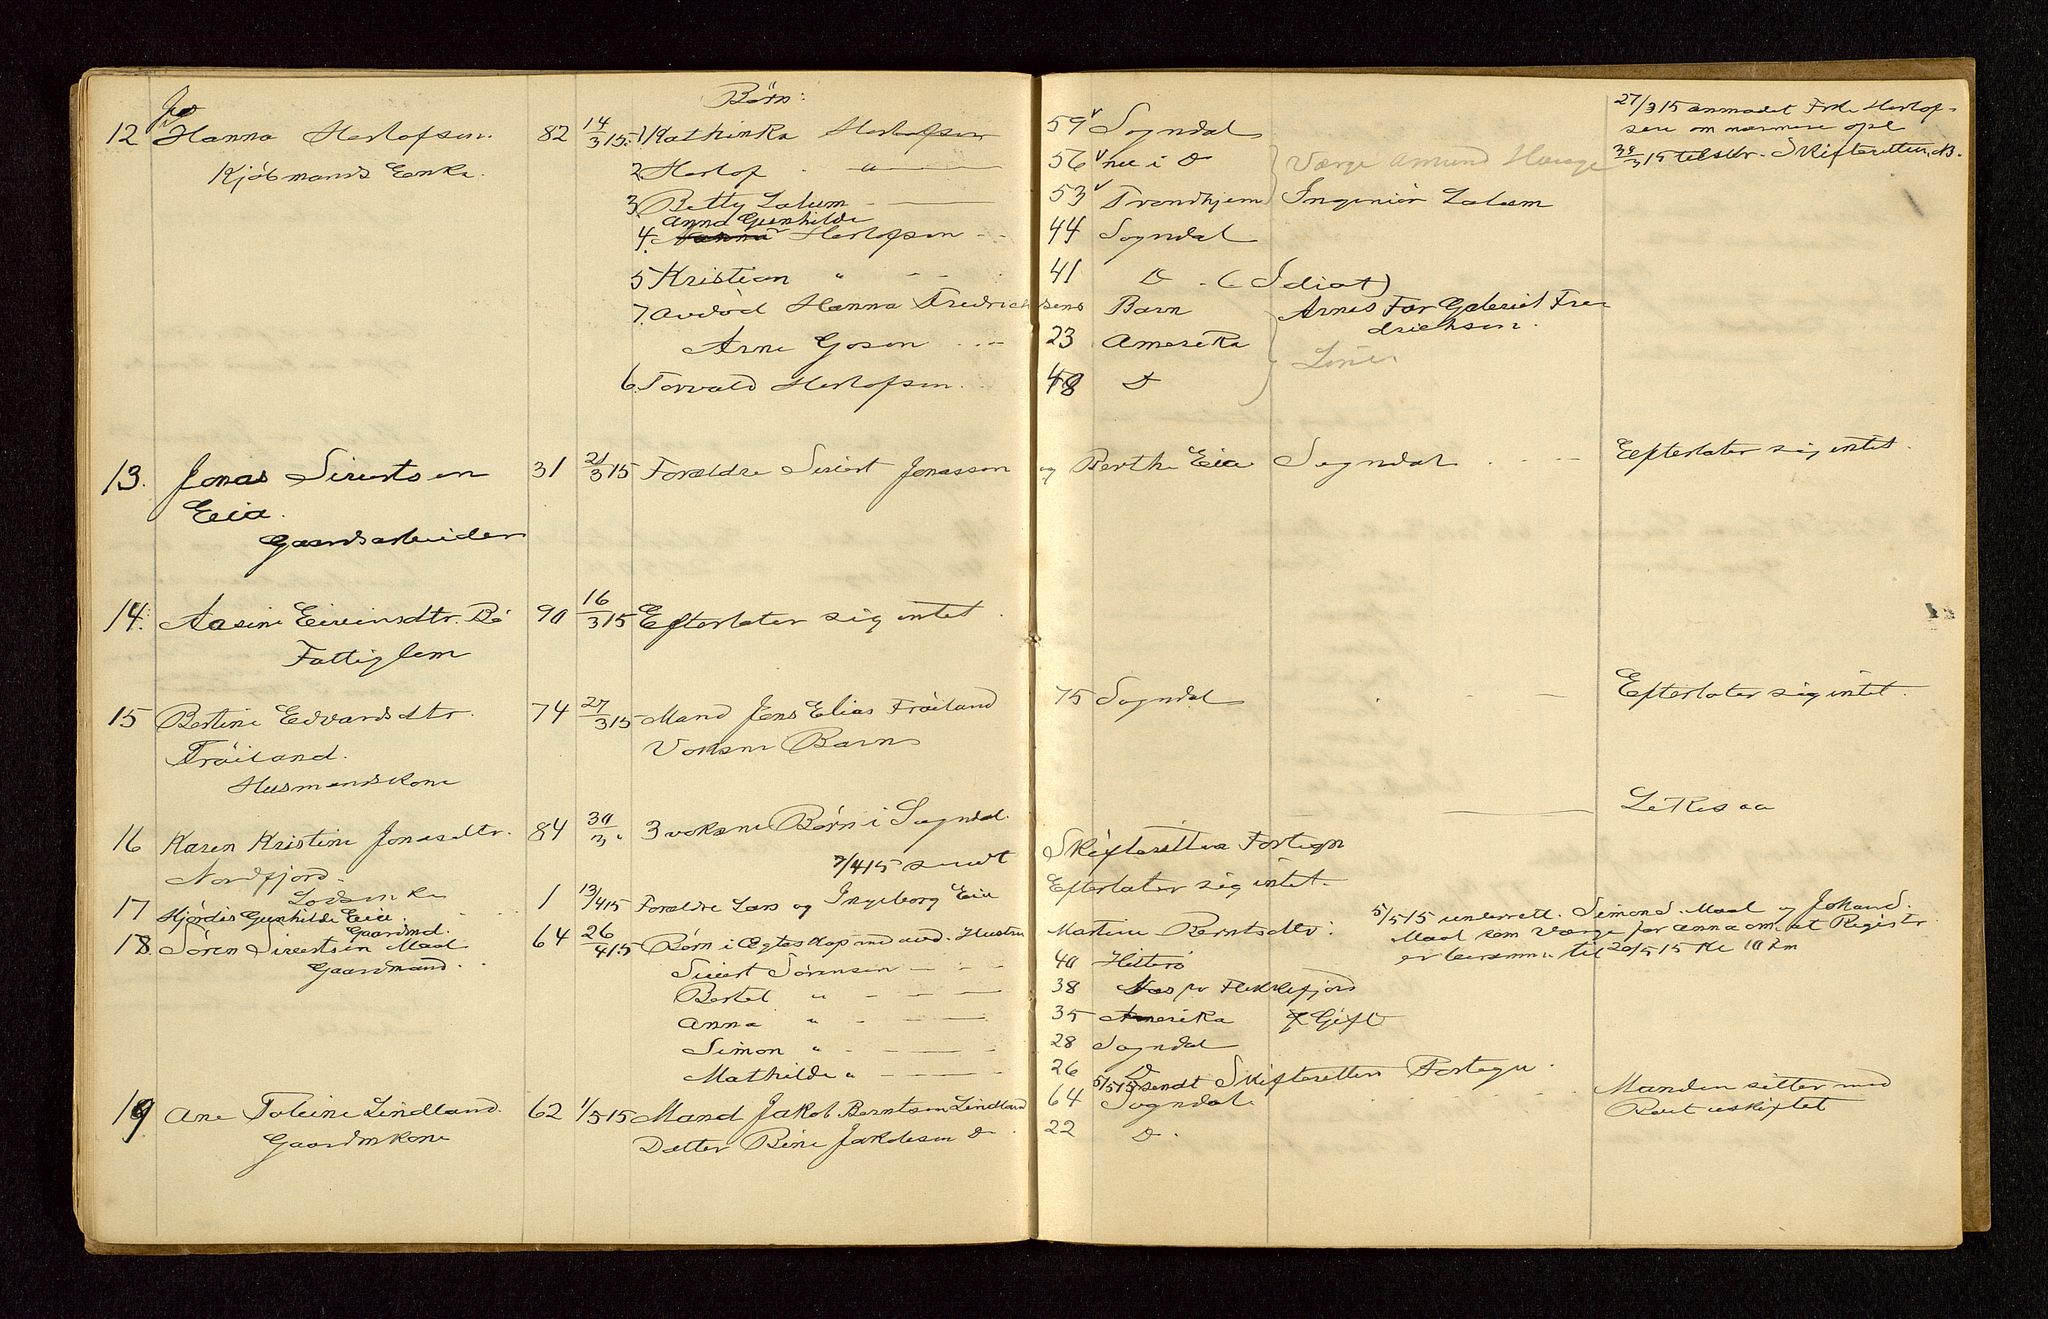 Børn:
12 Hanna Herlofsen. 82 14/3 15. 1 Kathinka Herlofsen
Kjøbmands Enke. 2. Herlof "
3. Betty Lalum
Anna Gunhilde
4. Herlofsen
5 Kristian "
7. avdød Hanna Fredrichsens
Arne Goson
6. Torvald Herlofsen.
13. Jonas Sivertsen 31 21/3 15 Forældre Sivert Jonassen
Eia.
Gaardsarbeider
14. Aasine Eivindsdtr. Bø 90 16/3 15 Efterlater sig intet.
Fattiglem
15 Bertine Edvardsdtr. 74 27/3 15 Mand Jens Elias Frøiland
Frøiland. Voksne Barn
Husmandskone
16 Karen Kristine Jonasdtr. 84 30/3 " 3 voksne Børn i Sogndal.
Nordfjord. 7/4 15 sendt
Lodsenke
17 Hjørdis Gunhilde Eia. 1 13/4 15 Forældre Lars og Ingeborg Eia
Gaardmd.
18. Søren Sivertsen Maal 64 26/4 15 Børn i Ægteskap med avd. Hustru
Gaardmand. Sivert Sørensen
Bertel "
Anna "
Simon "
Mathilde "
19 Ane Toleine Lindland. 62 1/5 15 Mand Jakob Berntsen Lindland
Gaardmkone Datter Bine Jakobsen Do
27/3 15 anmodet Frk. Herlof-
59 Sogndal sen om nærmere opl
56 nu i Do Værge Amund Hauge 30/3 15 tilskr. Skifteretten
53 Trondhjem Ingeniør Lalum
44 Sogndal
41 Do (Idiot)
Barn Arnes Far Gabriel Fre
drichsen.
23 Amerika
48 Do
og Berthe Eia Sogndal Efterlater sig intet.
75 Sogndal Efterlater sig intet.
Skifteretten Fortegn
Efterlater sig intet.
Martine Berntsdtr: 5/5 15 underrett. Simon S. Maal og Johan S.
Maal som Værge for Anna om at Registr
er til 20/5 15 Kl 10 Fm
40 Hitterø
38 Flekkefjord
35 Amerika Gift
28 Sogndal
26 Do
5/5 15 sendt Skifteretten Fortegn.
64 Sogndal. Manden sitter med
Boet uskiftet
22 Do.